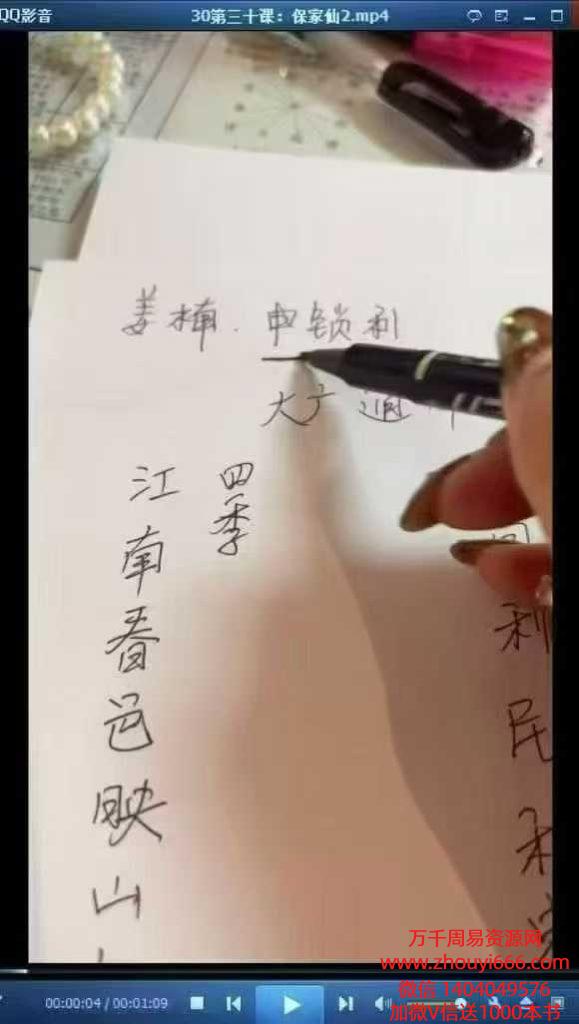 QQ影音
30第三十课：保家仙2.mp4
姜楠.申锁利
大广通
四季
江南春色映山
利民利
万千周易资源网
www.zhouyi666.com
微信 1404049576
加微V信送1000本书
00:00:04 / 00:01:09